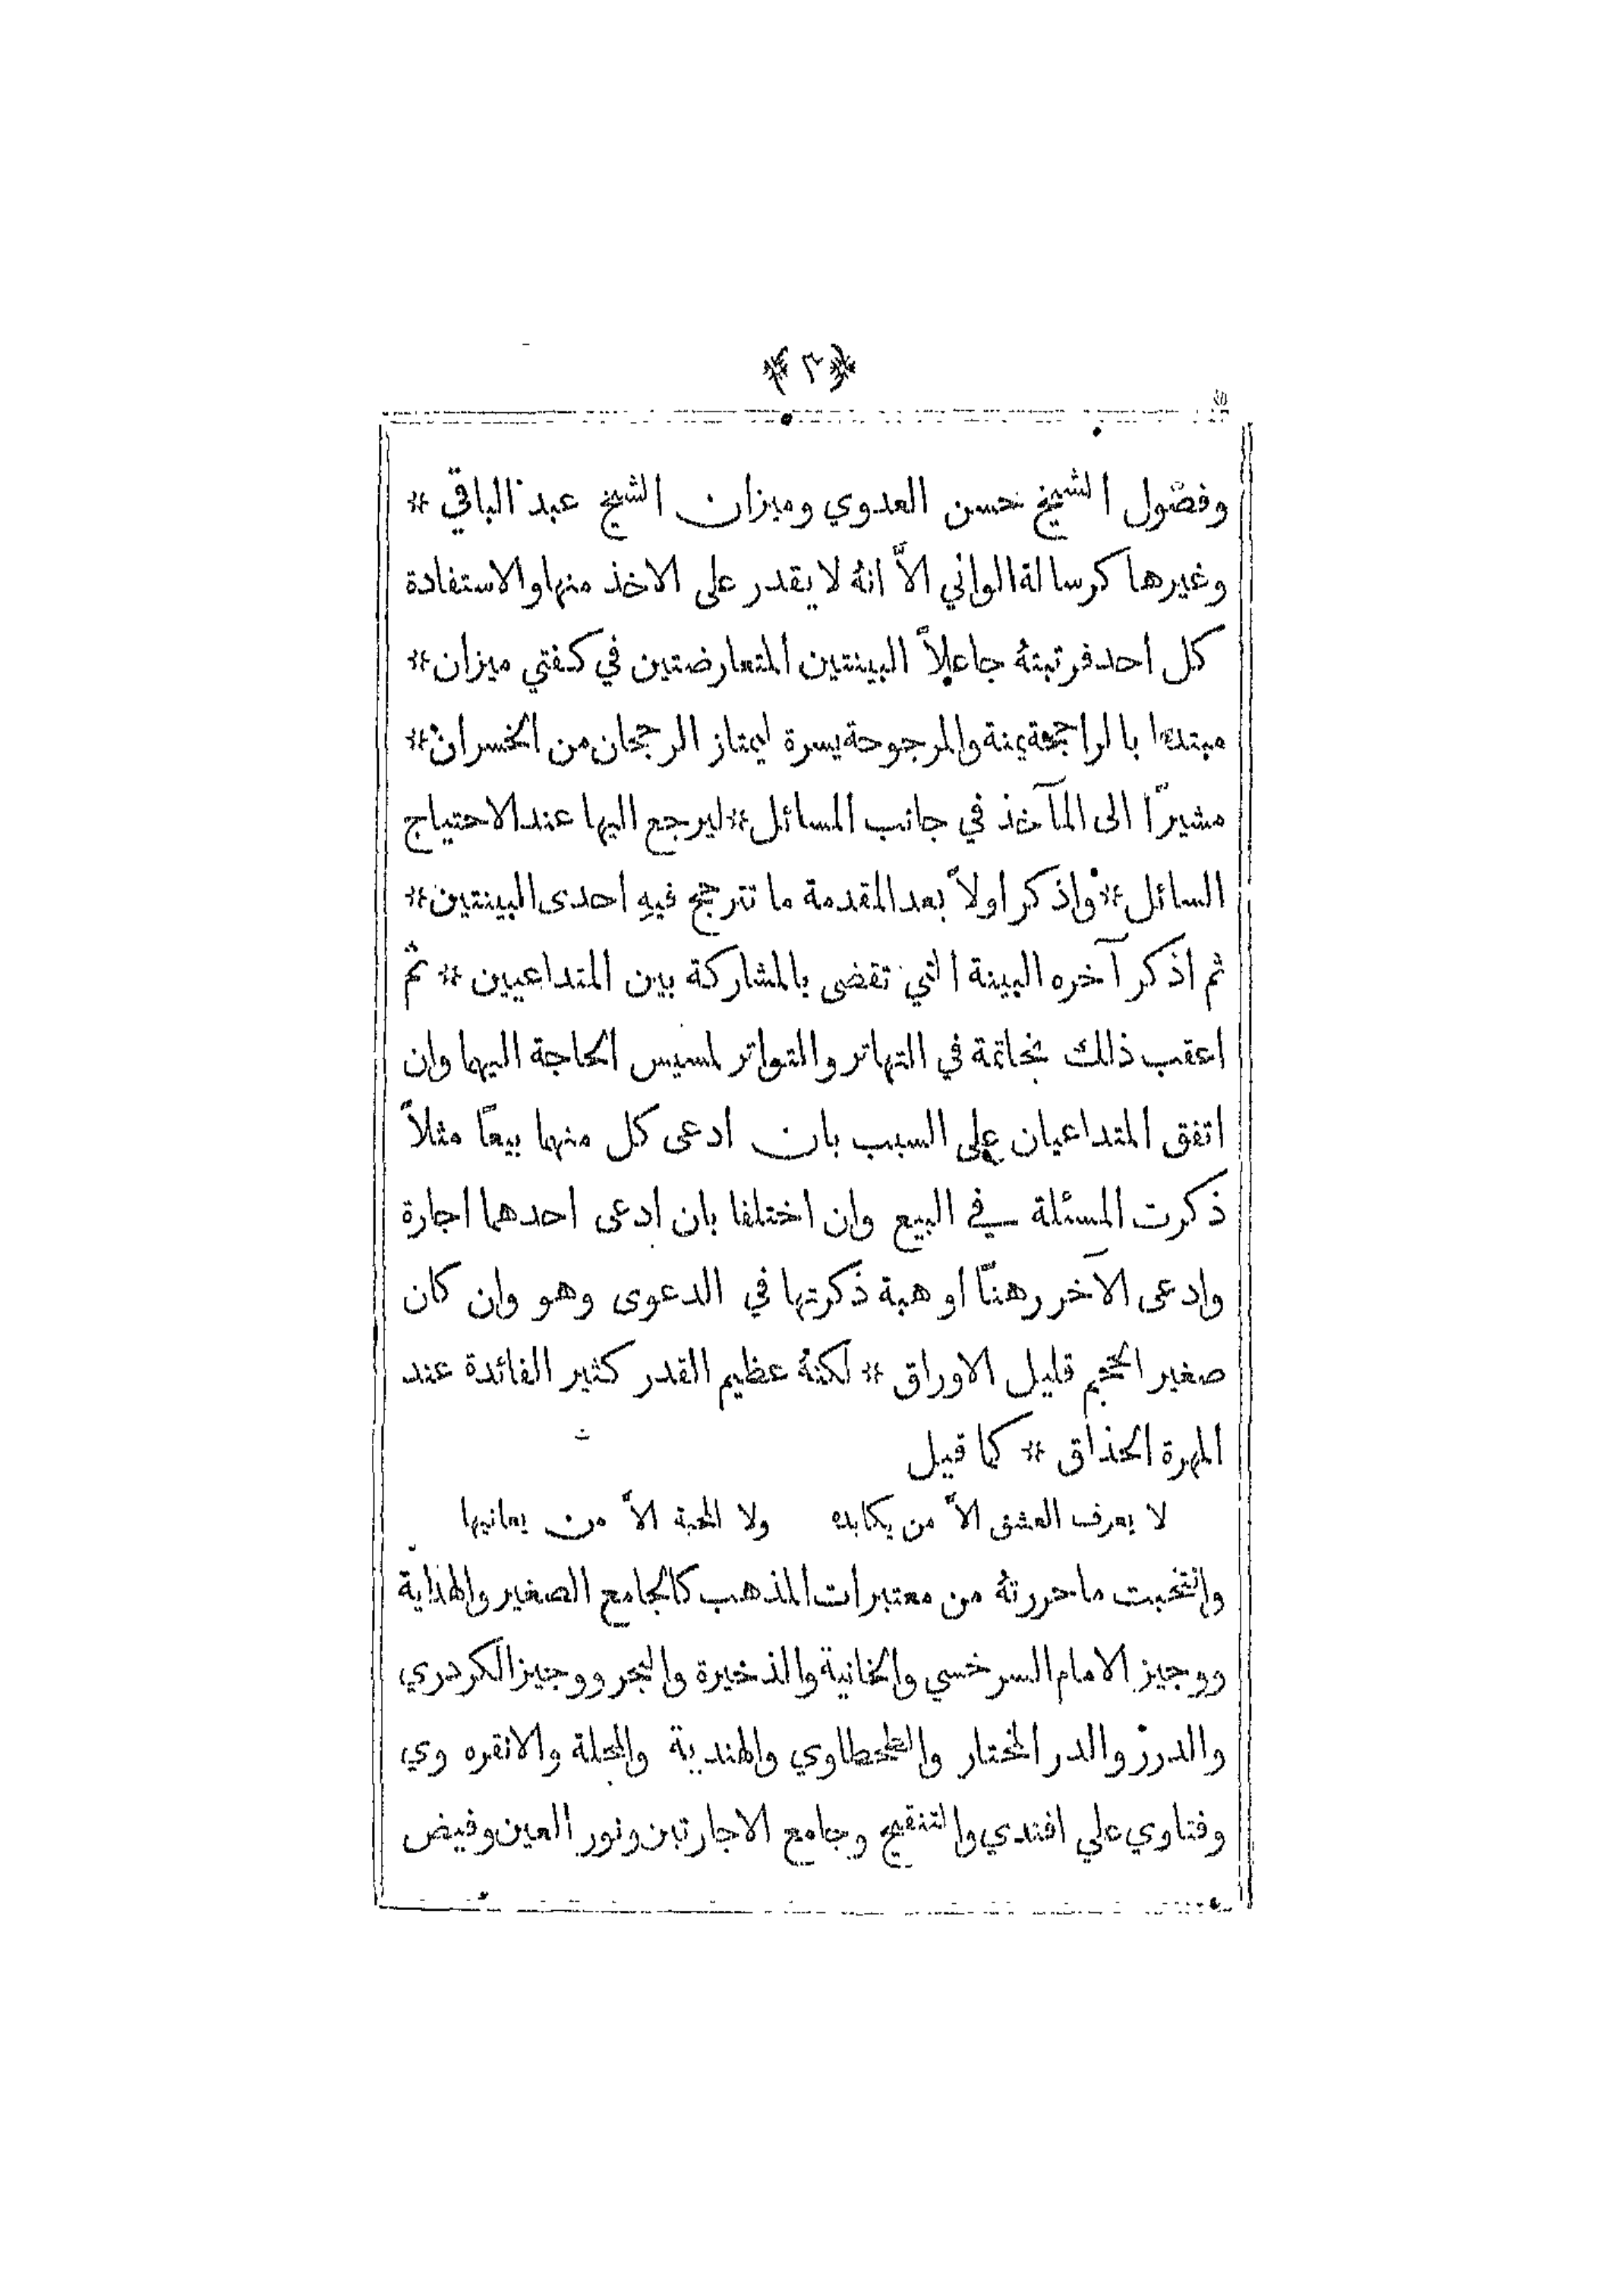 ﴿ ٢ ﴾
وفصول الشيخ حسن العدوي وميزان الشيخ عبد الباقي #
وغيرها كرسالة الواني الاَّ انهُ لا يقدر على الاخذ منها والاستفادة
كل احد فرتبتهُ جاعلاً البينتين المتعارضتين في كفتي ميزان #
مبتدءا بالراجحة يمنة والمرجوحة يسرة ليمتاز الرجحان من الخسران #
مشيرًا الى المآخذ في جانب المسائل # ليرجع اليها عند الاحتياج
السائل # واذكر اولاً بعد المقدمة ما تترجح فيهِ احدى البينتين #
ثم اذكر آخره البينة التي تقضى بالمشاركة بين المتداعيين # ثم
اعقب ذلك بخاتمة في التهاتر والتواتر لمسيس الحاجة اليهما وان
اتفق المتداعيان على السبب بان ادعى كل منهما بيعًا مثلاً
ذكرت المسئلة في البيع وان اختلفا بان ادعى احدهما اجارة
وادعى الآخر رهنًا او هبة ذكرتها في الدعوى وهو وان كان
صغير الحجم قليل الاوراق # لكنهُ عظيم القدر كثير الفائدة عند
المهرة الحذاق # كما قيل
لا يعرف العشق الاَّ من يكابده ولا المحبة الاَّ من يعانيها
وانتخبت ما حررتهُ من معتبرات المذهب كالجامع الصغير والهداية
ووجيز الامام السرخسي والخانية والذخيرة والبحر ووجيز الكردري
والدرر والدر المختار والطحطاوي والهندية والمجلة والانقره وي
وفتاوي علي افندي والتنقيح وجامع الاجارتين ونور العين وفيض